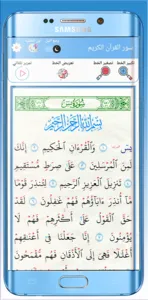 SAMSUNG
سور القرآن الكريم
تكبير الخط تصغير الخط تعريض الخط تمرير تلقائي
سورة يس
بِسْمِ اللَّهِ الرَّحْمَٰنِ الرَّحِيمِ
يسٓ وَٱلْقُرْءَانِ ٱلْحَكِيمِ إِنَّكَ لَمِنَ
ٱلْمُرْسَلِينَ عَلَىٰ صِرَٰطٍ مُّسْتَقِيمٍ
تَنزِيلَ ٱلْعَزِيزِ ٱلرَّحِيمِ لِتُنذِرَ قَوْمًا
مَّآ أُنذِرَ ءَابَآؤُهُمْ فَهُمْ غَٰفِلُونَ لَقَدْ
حَقَّ ٱلْقَوْلُ عَلَىٰٓ أَكْثَرِهِمْ فَهُمْ لَا
يُؤْمِنُونَ إِنَّا جَعَلْنَا فِىٓ أَعْنَٰقِهِمْ
أَغْلَٰلًا فَهِىَ إِلَى ٱلْأَذْقَانِ فَهُم